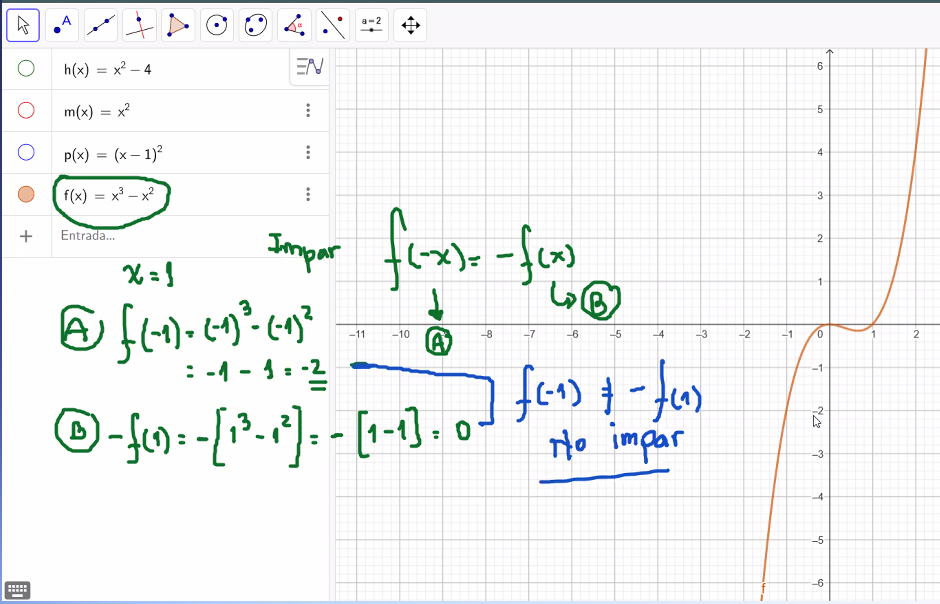 A
α
a=2
h(x) = x² − 4
m(x) = x²
p(x) = (x − 1)²
f(x) = x³ − x²
+ Entrada...
Impar f(-x) = -f(x)
B
A
x = 1
A f(-1) = (-1)³ - (-1)²
= -1 - 1 = -2
B -f(1) = -[1³ - 1²] = -[1-1] = 0
f(-1) ≠ -f(1)
No impar
6
5
4
3
2
1
−11 −10 −8 −7 −6 −5 −4 −3 −2 −1 0 1 2
−1
−2
−3
−4
−5
−6
f